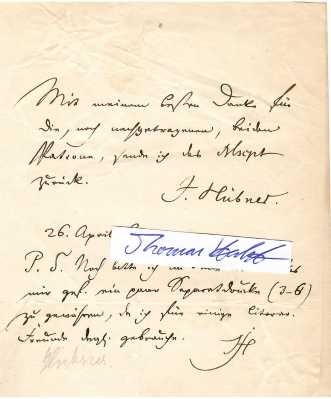 Mit meinem besten Dank für
die, noch nachgetragenen, beiden
Patrone, sende ich das Mscpt
zurück.
J. Hübner.
26. April
Thomas
P. S. Noch bitte ich
mir gef. ein paar Separatdrucke (3-6)
zu gewähren, da ich für einige literar.
Freunde dergl. gebrauche.